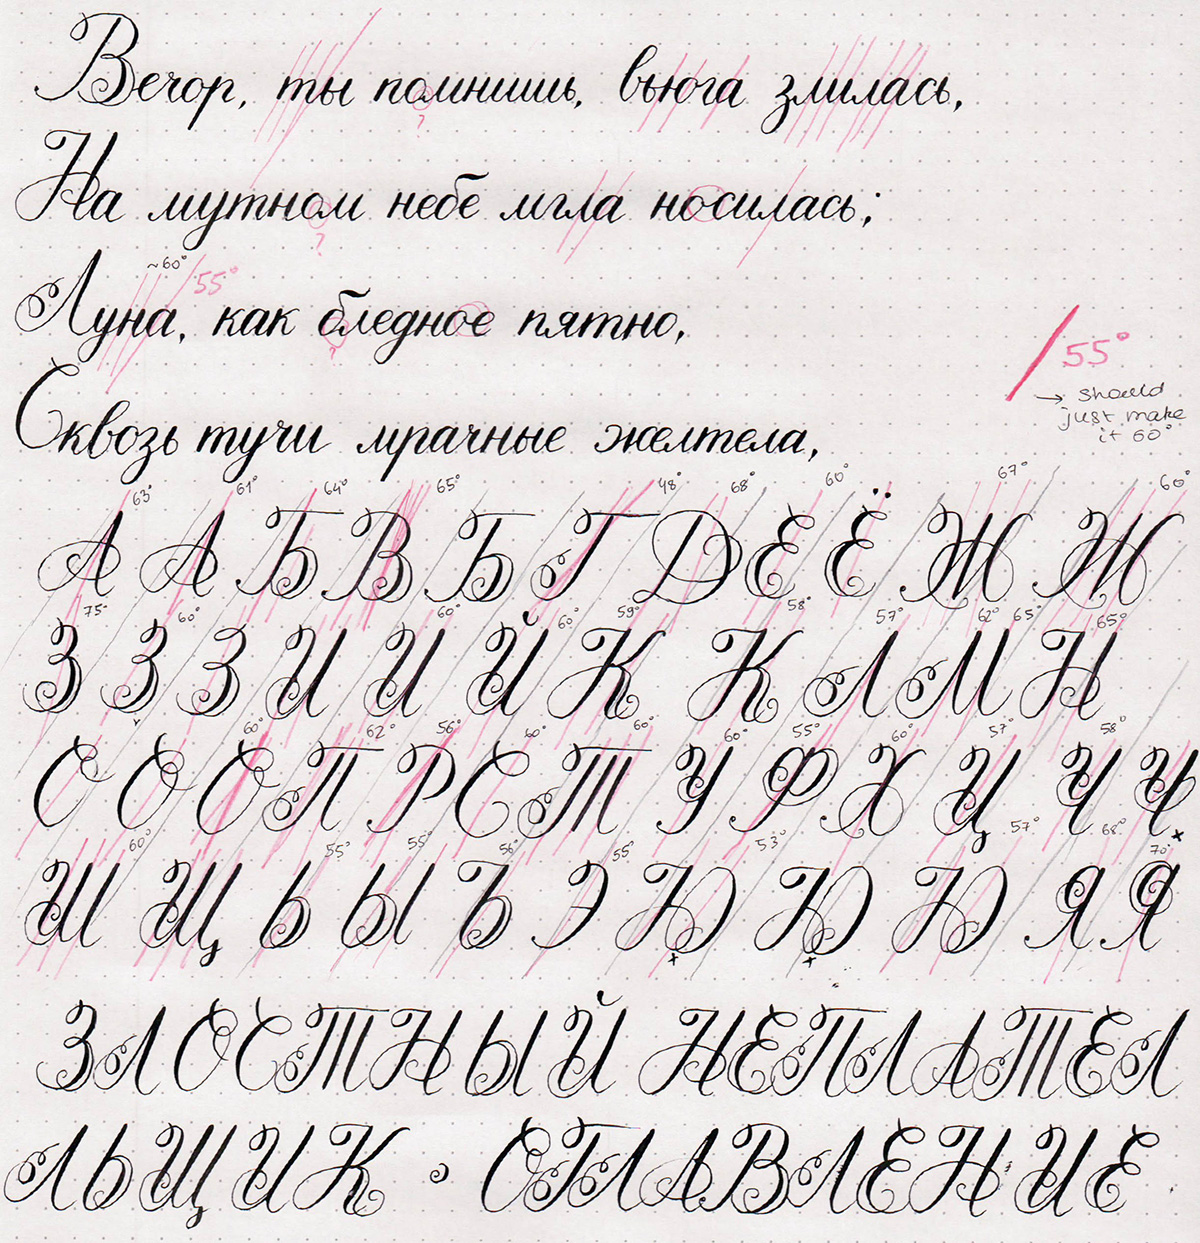 Вечор, ты помнишь, вьюга злилась,
?
На мутном небе мгла носилась;
?
~60° 55°
Луна, как бледное пятно,
?
55°
→ should
just make
it 60°
Сквозь тучи мрачные желтела,
63° 61° 64° 65° 48° 68° 60° 67° 60°
А А Б В Б Г Д Е Ё Ж Ж
75° 60° 60° 60° 59° 58° 57° 62° 65° 65°
З З З И И Й К К Л М Н
60° 62° 56° 60° 60° 60° 55° 60° 57° 58°
О О О П Р С Т У Ф Х Ц Ч Ч
60° 55° 55° 56° 55° 53° 57° 68° 70°
Ш Щ Ь Ы Ъ Э Ю Ю Ю Я Я
ЗЛОСТНЫЙ НЕПЛАТЕЛ
ЛЬЩИК • ОГЛАВЛЕНИЕ